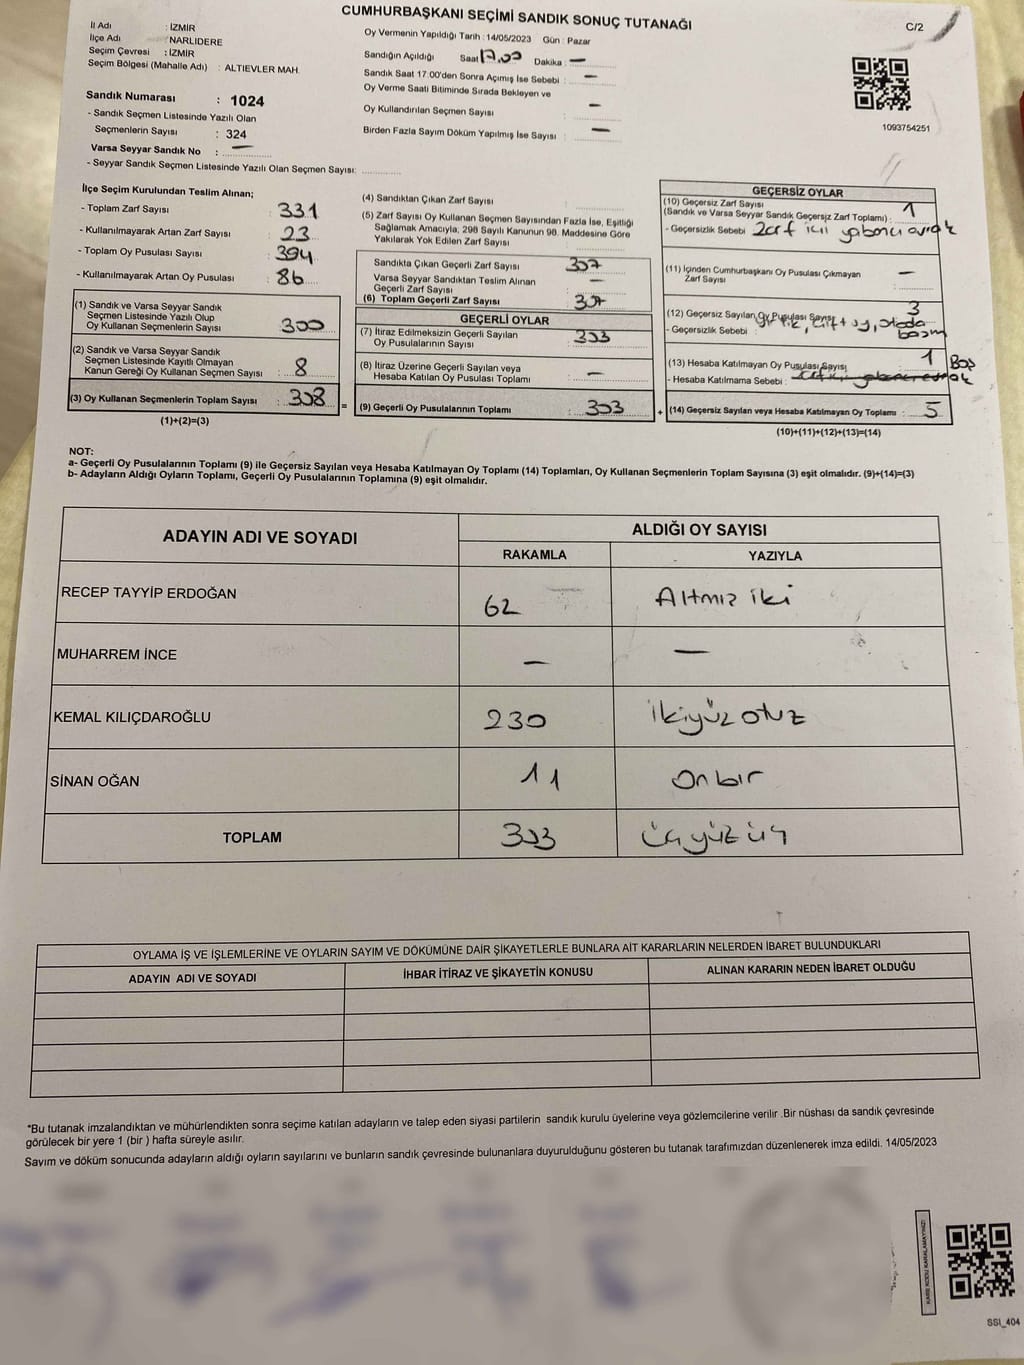 CUMHURBAŞKANI SEÇİMİ SANDIK SONUÇ TUTANAĞI
C/2
İl Adı : İZMİR
İlçe Adı : NARLIDERE
Seçim Çevresi : İZMİR
Seçim Bölgesi (Mahalle Adı) : ALTIEVLER MAH.
Oy Vermenin Yapıldığı Tarih : 14/05/2023 Gün : Pazar
Sandığın Açıldığı Saat 17.00 Dakika : —
Sandık Saat 17.00'den Sonra Açımış İse Sebebi : —
Oy Verme Saati Bitiminde Sırada Bekleyen ve
Oy Kullandırılan Seçmen Sayısı : —
Birden Fazla Sayım Döküm Yapılmış İse Sayısı : —
1093754251
Sandık Numarası : 1024
- Sandık Seçmen Listesinde Yazılı Olan
Seçmenlerin Sayısı : 324
Varsa Seyyar Sandık No : —
- Seyyar Sandık Seçmen Listesinde Yazılı Olan Seçmen Sayısı:
İlçe Seçim Kurulundan Teslim Alınan;
- Toplam Zarf Sayısı : 331
- Kullanılmayarak Artan Zarf Sayısı : 23
- Toplam Oy Pusulası Sayısı : 394
- Kullanılmayarak Artan Oy Pusulası : 86
(1) Sandık ve Varsa Seyyar Sandık
Seçmen Listesinde Yazılı Olup
Oy Kullanan Seçmenlerin Sayısı : 300
(2) Sandık ve Varsa Seyyar Sandık
Seçmen Listesinde Kayıtlı Olmayan
Kanun Gereği Oy Kullanan Seçmen Sayısı : 8
(3) Oy Kullanan Seçmenlerin Toplam Sayısı : 308
(1)+(2)=(3)
(4) Sandıktan Çıkan Zarf Sayısı :
(5) Zarf Sayısı Oy Kullanan Seçmen Sayısından Fazla İse, Eşitliği
Sağlamak Amacıyla; 298 Sayılı Kanunun 98. Maddesine Göre
Yakılarak Yok Edilen Zarf Sayısı :
Sandıkta Çıkan Geçerli Zarf Sayısı : 307
Varsa Seyyar Sandıktan Teslim Alınan
Geçerli Zarf Sayısı : —
(6) Toplam Geçerli Zarf Sayısı : 307
GEÇERLİ OYLAR
(7) İtiraz Edilmeksizin Geçerli Sayılan
Oy Pusulalarının Sayısı : 303
(8) İtiraz Üzerine Geçerli Sayılan veya
Hesaba Katılan Oy Pusulası Toplamı : —
= (9) Geçerli Oy Pusulalarının Toplamı : 303 +
GEÇERSİZ OYLAR
(10) Geçersiz Zarf Sayısı
(Sandık ve Varsa Seyyar Sandık Geçersiz Zarf Toplamı) : 1
- Geçersizlik Sebebi Zarf içi yabancı
(11) İçinden Cumhurbaşkanı Oy Pusulası Çıkmayan
Zarf Sayısı : —
(12) Geçersiz Sayılan Oy Pusulası Sayısı 3
- Geçersizlik Sebebi : çift oy,
(13) Hesaba Katılmayan Oy Pusulası Sayısı 1 Boş
- Hesaba Katılmama Sebebi :
(14) Geçersiz Sayılan veya Hesaba Katılmayan Oy Toplamı : 5
(10)+(11)+(12)+(13)=(14)
NOT:
a- Geçerli Oy Pusulalarının Toplamı (9) ile Geçersiz Sayılan veya Hesaba Katılmayan Oy Toplamı (14) Toplamları, Oy Kullanan Seçmenlerin Toplam Sayısına (3) eşit olmalıdır. (9)+(14)=(3)
b- Adayların Aldığı Oyların Toplamı, Geçerli Oy Pusulalarının Toplamına (9) eşit olmalıdır.
ADAYIN ADI VE SOYADI
ALDIĞI OY SAYISI
RAKAMLA YAZIYLA
RECEP TAYYİP ERDOĞAN 62 Altmış iki
MUHARREM İNCE — —
KEMAL KILIÇDAROĞLU 230 İkiyüz otuz
SİNAN OĞAN 11 Onbir
TOPLAM 303 üçyüz üç
OYLAMA İŞ VE İŞLEMLERİNE VE OYLARIN SAYIM VE DÖKÜMÜNE DAİR ŞİKAYETLERLE BUNLARA AİT KARARLARIN NELERDEN İBARET BULUNDUKLARI
ADAYIN ADI VE SOYADI İHBAR İTİRAZ VE ŞİKAYETİN KONUSU ALINAN KARARIN NEDEN İBARET OLDUĞU
*Bu tutanak imzalandıktan ve mühürlendikten sonra seçime katılan adayların ve talep eden siyasi partilerin sandık kurulu üyelerine veya gözlemcilerine verilir .Bir nüshası da sandık çevresinde
görülecek bir yere 1 (bir ) hafta süreyle asılır.
Sayım ve döküm sonucunda adayların aldığı oyların sayılarını ve bunların sandık çevresinde bulunanlara duyurulduğunu gösteren bu tutanak tarafımızdan düzenlenerek imza edildi. 14/05/2023
KARE KODU KARALAMAYINIZ!
SSI_404